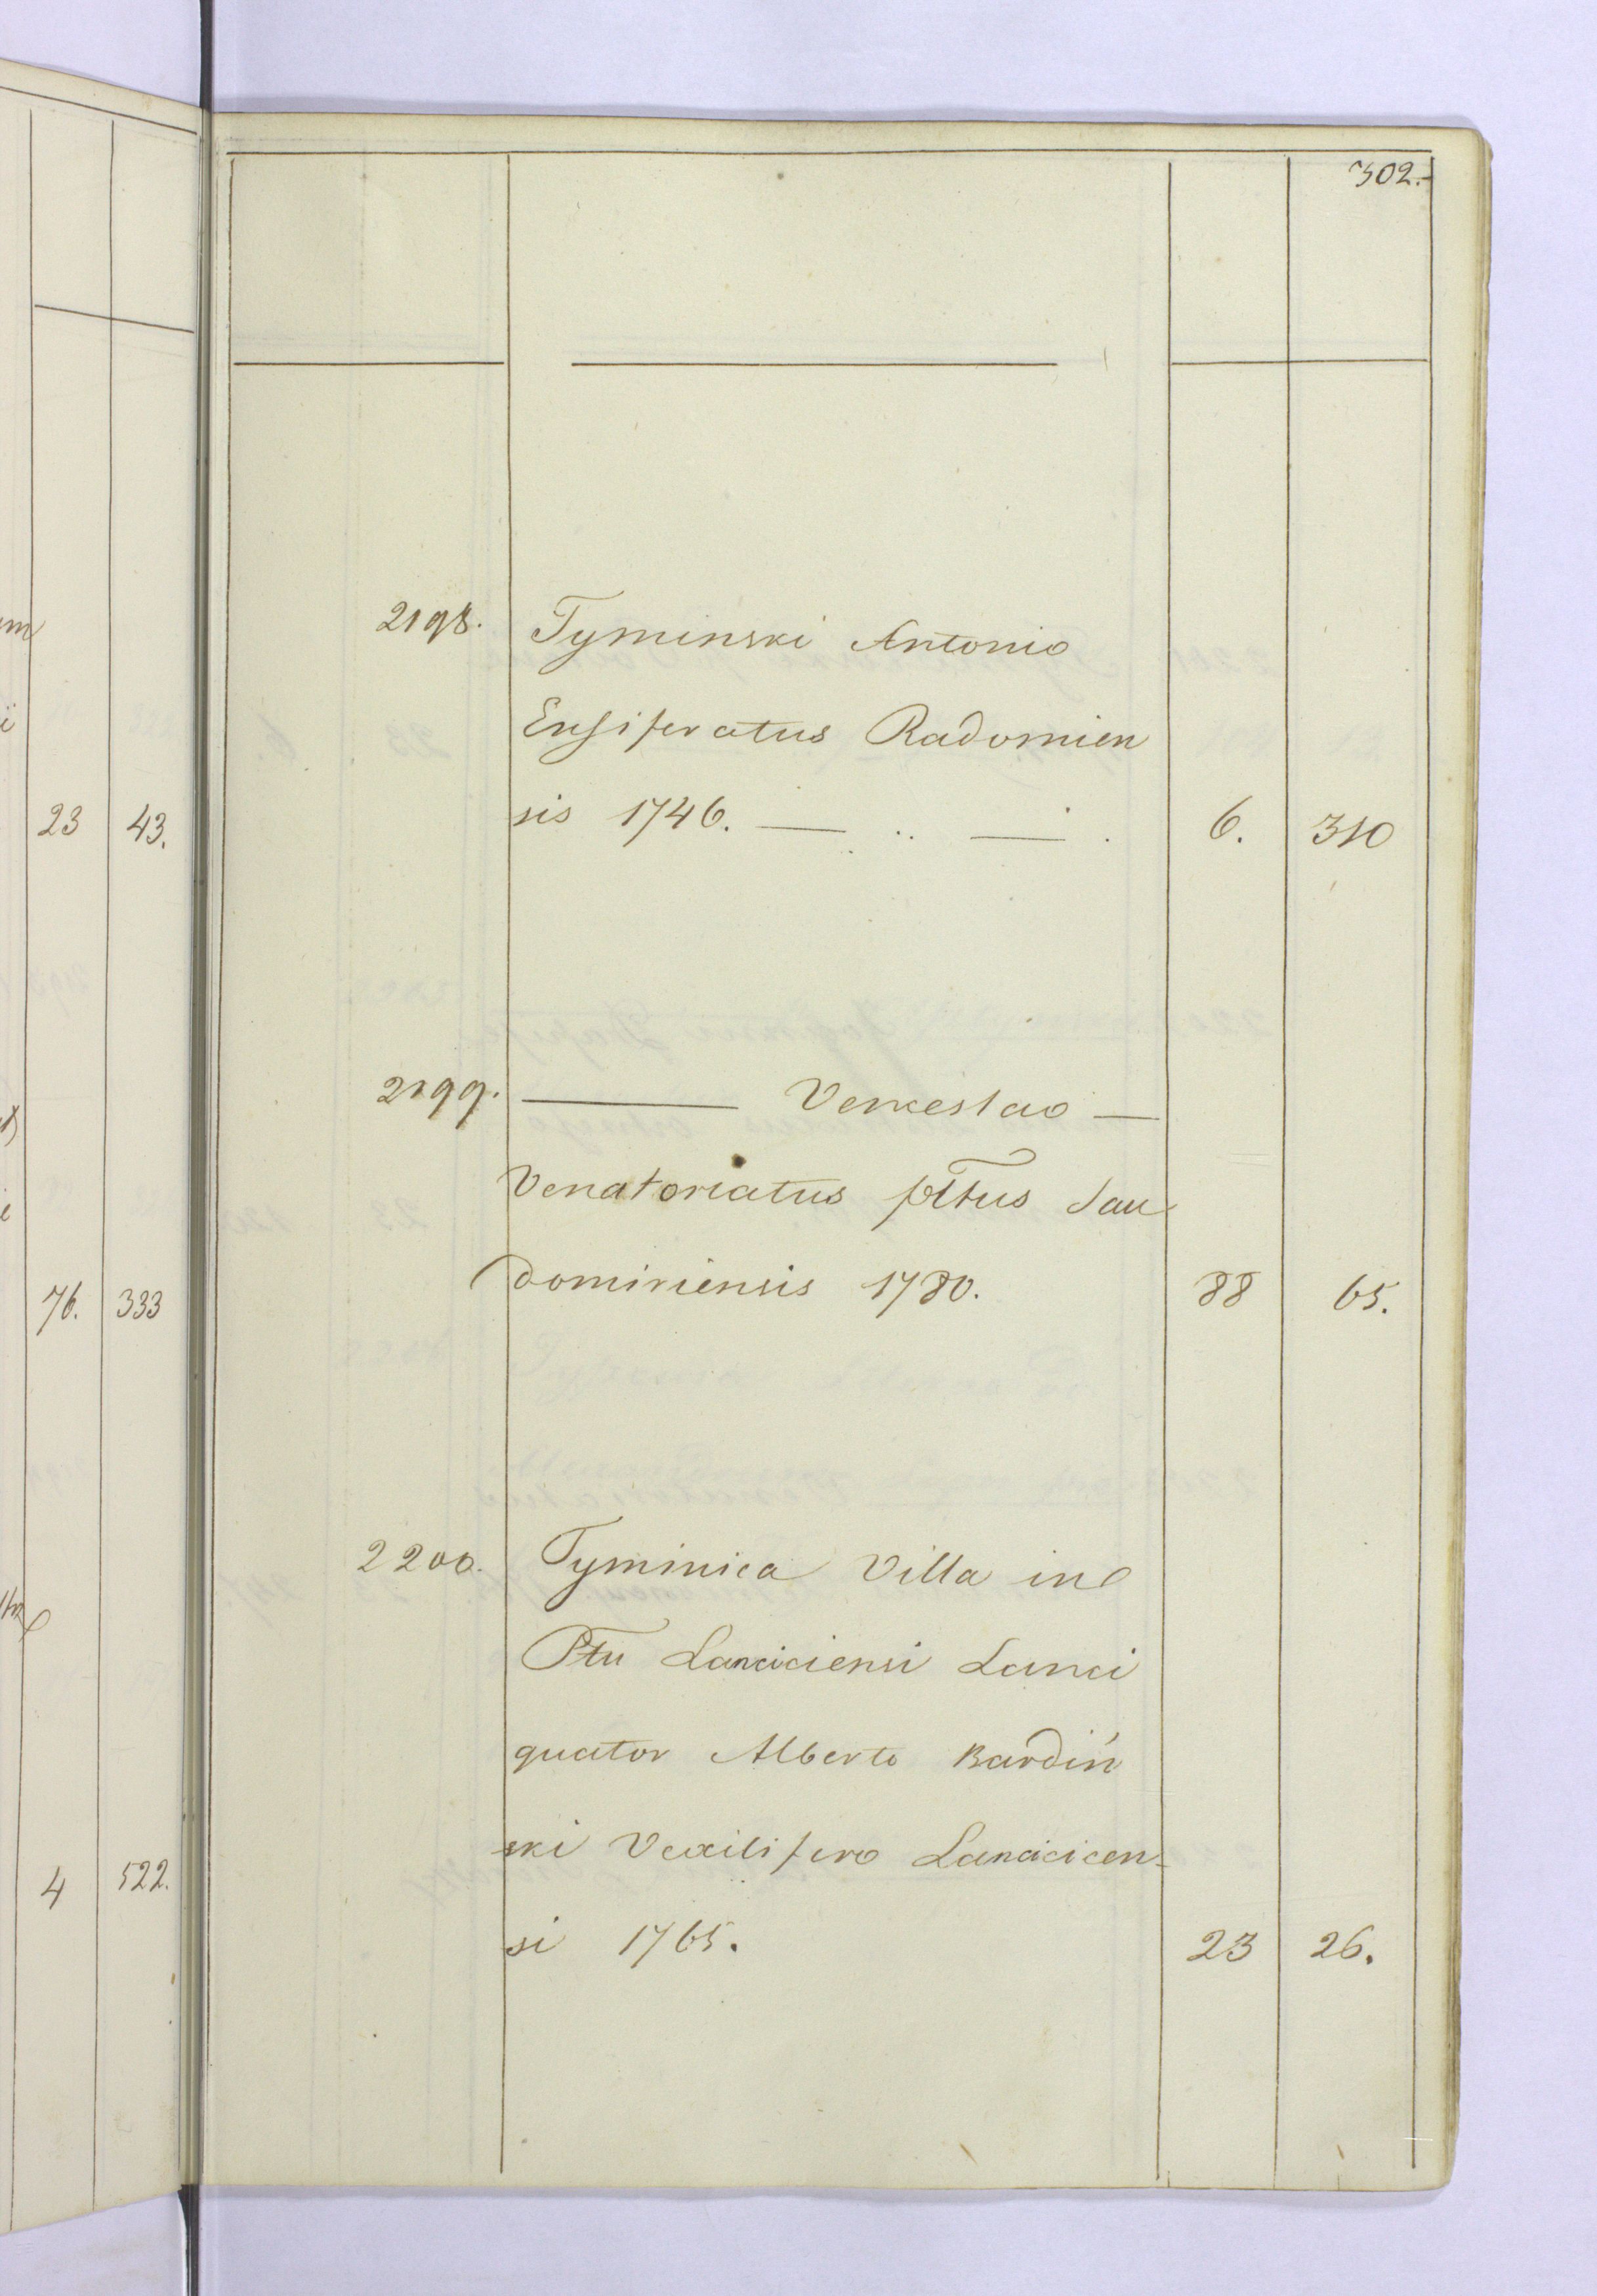 302.
2198. Tyminski Antonio
Ensiferatus Radomien
sis 1746. — .. — . 6. 310
2199. — Venceslao —
Venatoriatus Pttus San
domiriensis 1780. 88 65.
2200. Tyminica Villa in
Ptu Lanciciensi Lanci
quator Alberto Bardiń
ski Vexilifero Lancicien-
si 1765. 23 26.
23 43.
76. 333
4 522.